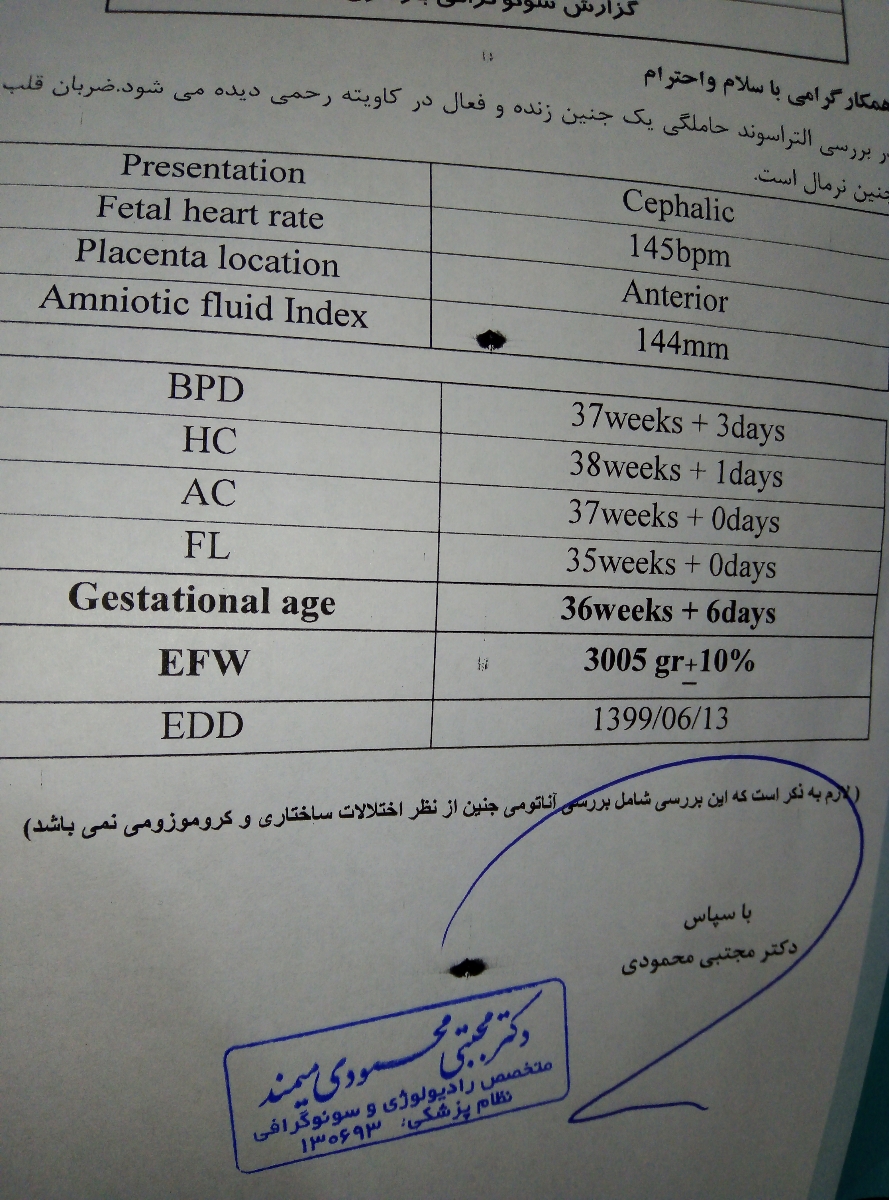 گزارش سونوگرافی
همکار گرامی با سلام واحترام
در بررسی التراسوند حاملگی یک جنین زنده و فعال در کاویته رحمی دیده می شود.ضربان قلب
جنین نرمال است.
Presentation Cephalic
Fetal heart rate 145bpm
Placenta location Anterior
Amniotic fluid Index 144mm
BPD 37weeks + 3days
HC 38weeks + 1days
AC 37weeks + 0days
FL 35weeks + 0days
Gestational age 36weeks + 6days
EFW 3005 gr±10%
EDD 1399/06/13
(لازم به ذکر است که این بررسی شامل بررسی آناتومی جنین از نظر اختلالات ساختاری و کروموزومی نمی باشد)
با سپاس
دکتر مجتبی محمودی
دکتر مجتبی محمودی میمند
متخصص رادیولوژی و سونوگرافی
نظام پزشکی: ۱۳۰۶۹۳